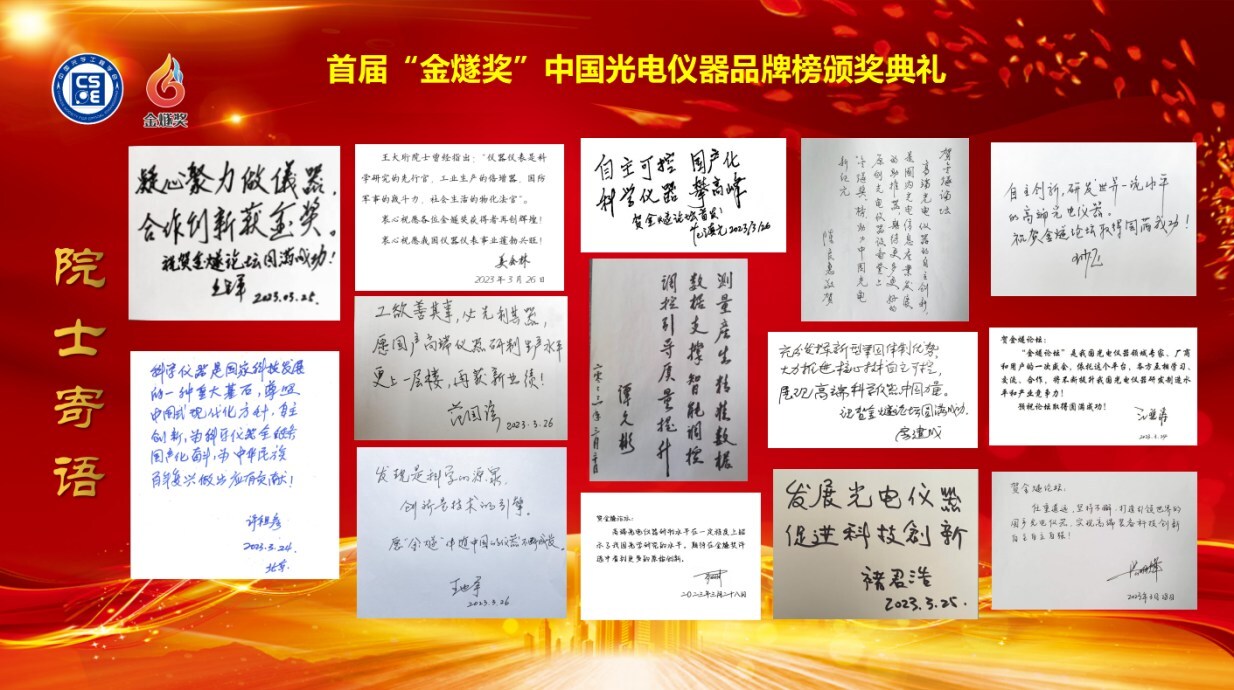 首届“金燧奖”中国光电仪器品牌榜颁奖典礼
金燧奖
院士寄语
凝心聚力做儀器，
合作创新获金奖。
祝贺金燧论坛圆满成功！
2023.03.25.
王大珩院士曾经指出：“仪器仪表是科
学研究的先行官，工业生产的倍增器，国防
军事的战斗力，社会生活的物化法官”。
衷心祝愿各位金燧奖获得者再创辉煌！
衷心祝愿我国仪器仪表事业蓬勃兴旺！
姜会林
2023年3月26日
自主可控 国产化
科学仪器 攀高峰
贺金燧论坛首发！
2023/3/26
贺金燧论坛
高端光电仪器的自主创新，
是国内光电信息产业发展
的助推器，期待更多更好的
原创光电仪器设备登上
金燧奖榜，助力中国光电
新纪元
陈良惠敬贺
自主创新，研发世界一流水平
的高端光电仪器。
祝贺金燧论坛取得圆满成功！
科学仪器是国家科技发展
的一种重大基石，尊照
中国式现代化方针，自主
创新，为科学仪器全链条
国产化奋斗，为中华民族
伟大复兴做出应有贡献！
许祖彦
2023.3.24.
北京
工欲善其事，必先利其器，
愿国产高端仪器研制生产水平
更上一层楼，再获新业绩！
范国滨
2023.3.26
测量产生精准数据
数据支撑智能调控
调控引导质量提升
谭久彬
二〇二三年三月二十日
充分发挥新型举国体制优势，
大力推进核心技术自立自强，
展现高端科学仪器中国力量。
祝贺金燧论坛圆满成功.
房建成
贺金燧论坛：
“金燧论坛”是我国光电仪器领域专家、厂商
和用户的一次盛会，依托这个平台，各方互相学习、
交流、合作，将不断提升我国光电仪器研发制造水
平和产业竞争力！
预祝论坛取得圆满成功！
2023.3.24
发现是科学的源泉，
创新是技术的引擎。
愿“金燧”中国的仪器不断成长。
2023.3.26
贺金燧论坛：
高端光电仪器的水平在一定程度上揭
示了我国光学研究的水平。期待在金燧奖评
选中看到更多的原始创新。
二〇二三年三月二十八日
发展光电仪器
促进科技創新
褚君浩
2023.3.25.
贺金燧论坛：
任重道远，坚持不懈，打造引领世界的
国产光电仪器，实现高端装备科技创新
自立自主自强！
2023年3月28日